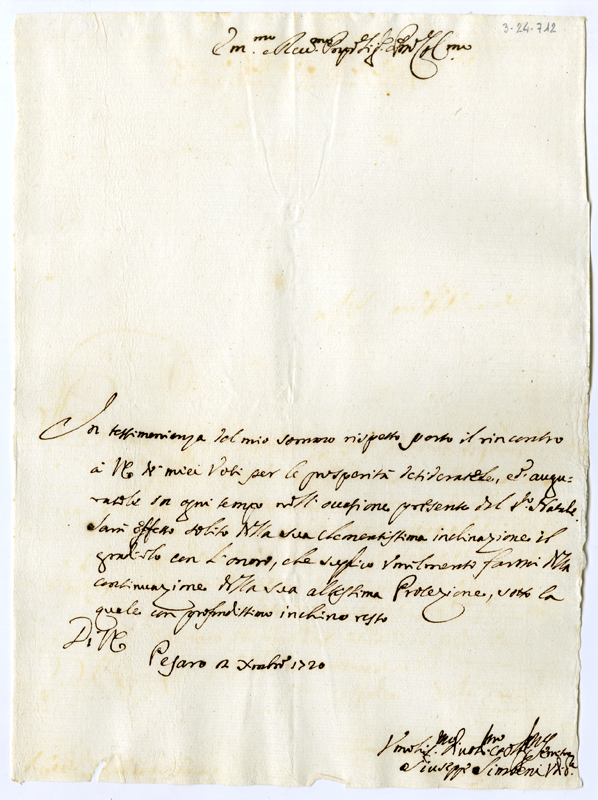 3-24-712
Em.mo e Rev.mo
In testimonianza del mio sommo rispetto porto il rincontro
à VE de miei Voti per le prosperità desideratele, ed augu-
ratele in ogni tempo nell'occasione presente del S.to Natale.
Sarà effetto solito della sua clementissima inclinazione il
gradirlo con l'onore, che suplico umilmente farmi della
continuazione della sua altissima Protezione, sotto la
quale con profondissimo inchino resto
Di VE
Pesaro 12 Xmbre 1720
Giuseppe Simoni